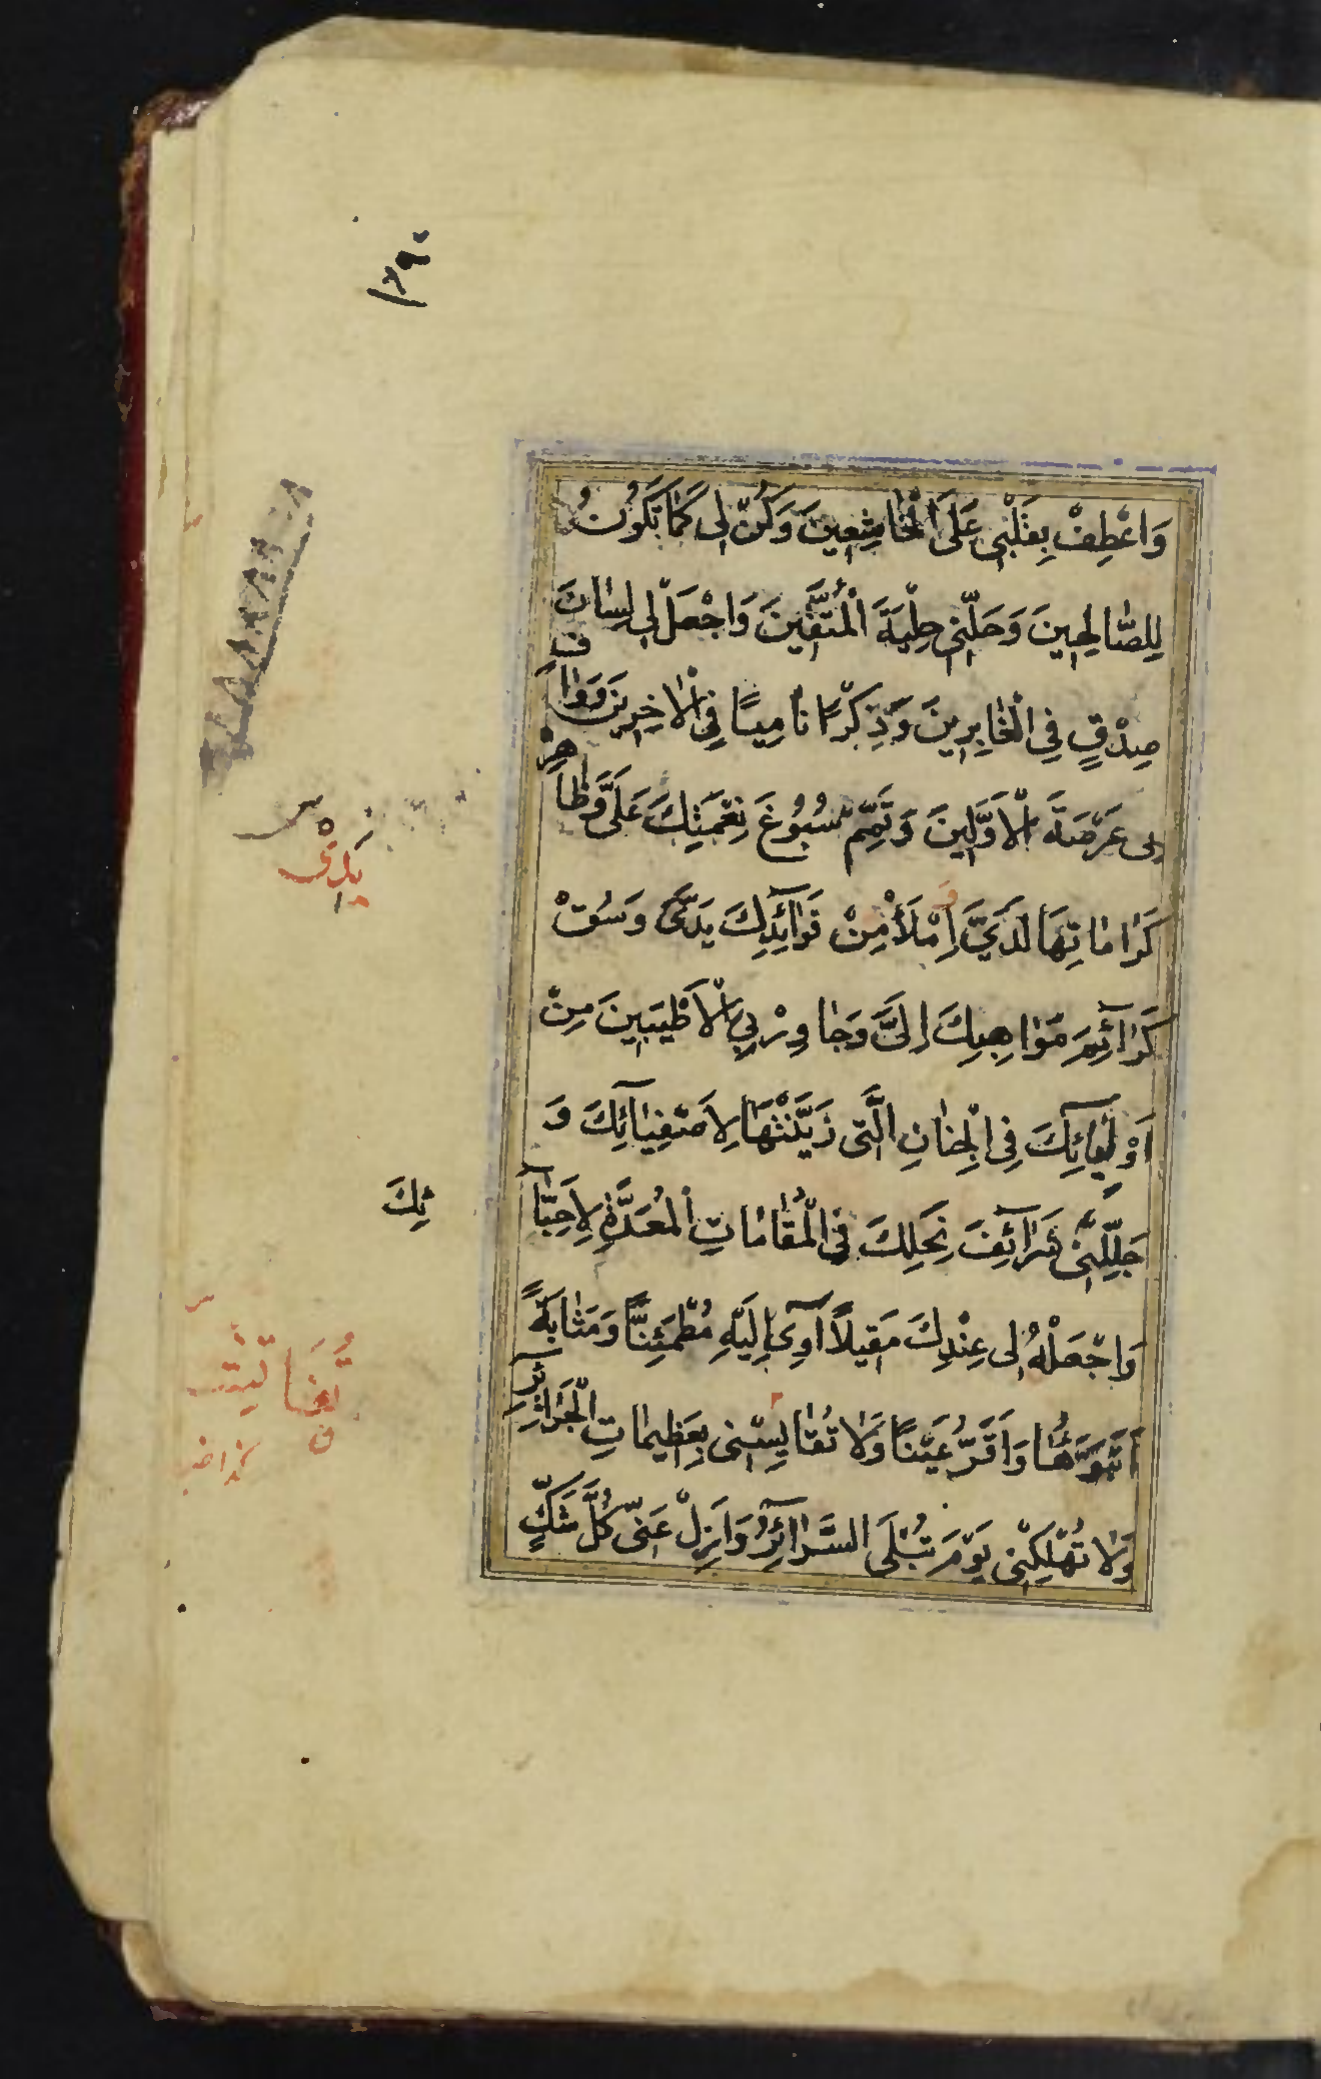 وَاعْطِفْ بِقَلْبِي عَلَى الْخَاشِعِينَ وَكُنْ لِي كَمَا تَكُونُ
لِلصَّالِحِينَ وَحَلِّنِي حِلْيَةَ الْمُتَّقِينَ وَاجْعَلْ لِي لِسَانَ
صِدْقٍ فِي الْغَابِرِينَ وَذِكْرًا نَامِيًا فِي الْاٰخِرِينَ وَوَافِ
بِي عَرْصَةَ الْاَوَّلِينَ وَتَمِّمْ سُبُوغَ نِعْمَتِكَ عَلَيَّ وَظَاهِرْ
كَرَامَاتِهَا لَدَيَّ اِمْلَأْ مِنْ فَوَآئِدِكَ يَدَيَّ وَسُقْ
كَرَآئِمَ مَوَاهِبِكَ اِلَيَّ وَجَاوِرْ بِيَ الْاَطْيَبِينَ مِنْ
اَوْلِيَآئِكَ فِي الْجِنَانِ الَّتِي زَيَّنْتَهَا لِاَصْفِيَآئِكَ وَ
جَلِّلْنِي شَرَآئِفَ نِحَلِكَ فِي الْمُقَامَاتِ الْمُعَدَّةِ لِاَحِبَّآ
ئِكَ
وَاجْعَلْ لِي عِنْدَكَ مَقِيلًا آوِي اِلَيْهِ مُطْمَئِنًّا وَمَثَابَةً
اَتَبَوَّءُهَا وَاَقَرُّ عَيْنًا وَلَا تُقَايِسْنِي بِعَظِيمَاتِ الْجَرَآئِرِ
وَلَا تُهْلِكْنِي يَوْمَ تُبْلَى السَّرَآئِرُ وَاَزِلْ عَنِّي كُلَّ شَكٍّ
يَدِي